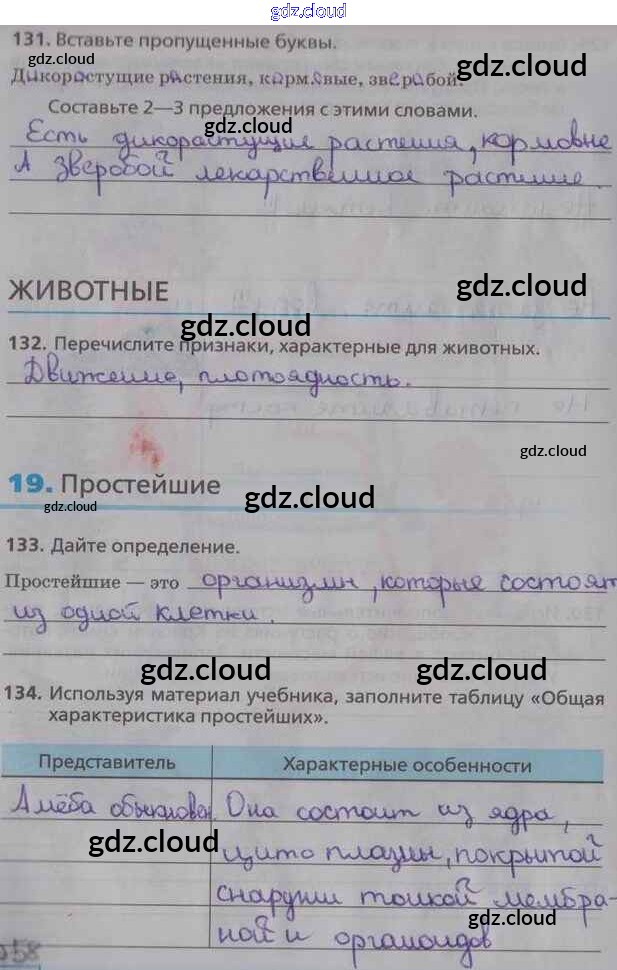 gdz.cloud
131. Вставьте пропущенные буквы.
Дикорастущие растения, кормовые, зверобой.
gdz.cloud
Составьте 2—3 предложения с этими словами.
gdz.cloud
Есть дикорастущие растения, кормовые
А зверобой лекарственное растение.
gdz.cloud
ЖИВОТНЫЕ
gdz.cloud
132. Перечислите признаки, характерные для животных.
Движение, плотоядность.
gdz.cloud
19. Простейшие
gdz.cloud
gdz.cloud
133. Дайте определение.
Простейшие — это организмы, которые состоят
из одной клетки.
gdz.cloud gdz.cloud
134. Используя материал учебника, заполните таблицу «Общая
характеристика простейших».
Представитель Характерные особенности
Амёба обыкновен Она состоит из ядра,
gdz.cloud
цито плазмы, покрытой
снаружи тонкой мембра-
ной и органоидов
gdz.cloud
58